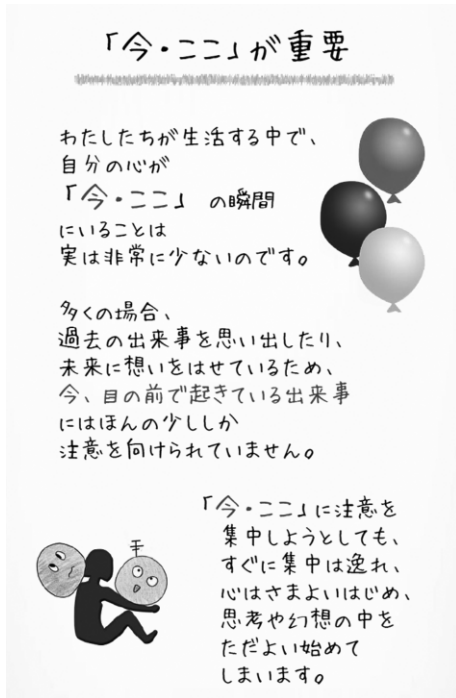 「今・ここ」が重要
わたしたちが生活する中で、
自分の心が
「今・ここ」 の瞬間
にいることは
実は非常に少ないのです。
多くの場合、
過去の出来事を思い出したり、
未来に想いをはせているため、
今、目の前で起きている出来事
にはほんの少ししか
注意を向けられていません。
「今・ここ」に注意を
集中しようとしても、
すぐに集中は逸れ、
心はさまよいはじめ、
思考や幻想の中を
ただよい始めて
しまいます。